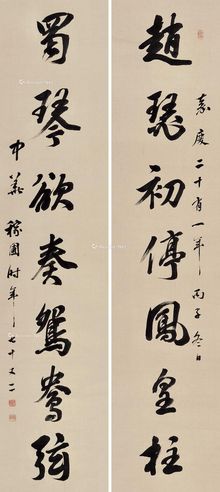 趙瑟初停鳳皇柱
嘉慶二十有一年丙子冬日
蜀琴欲奏鴛鴦弦
穆園時年七十又二